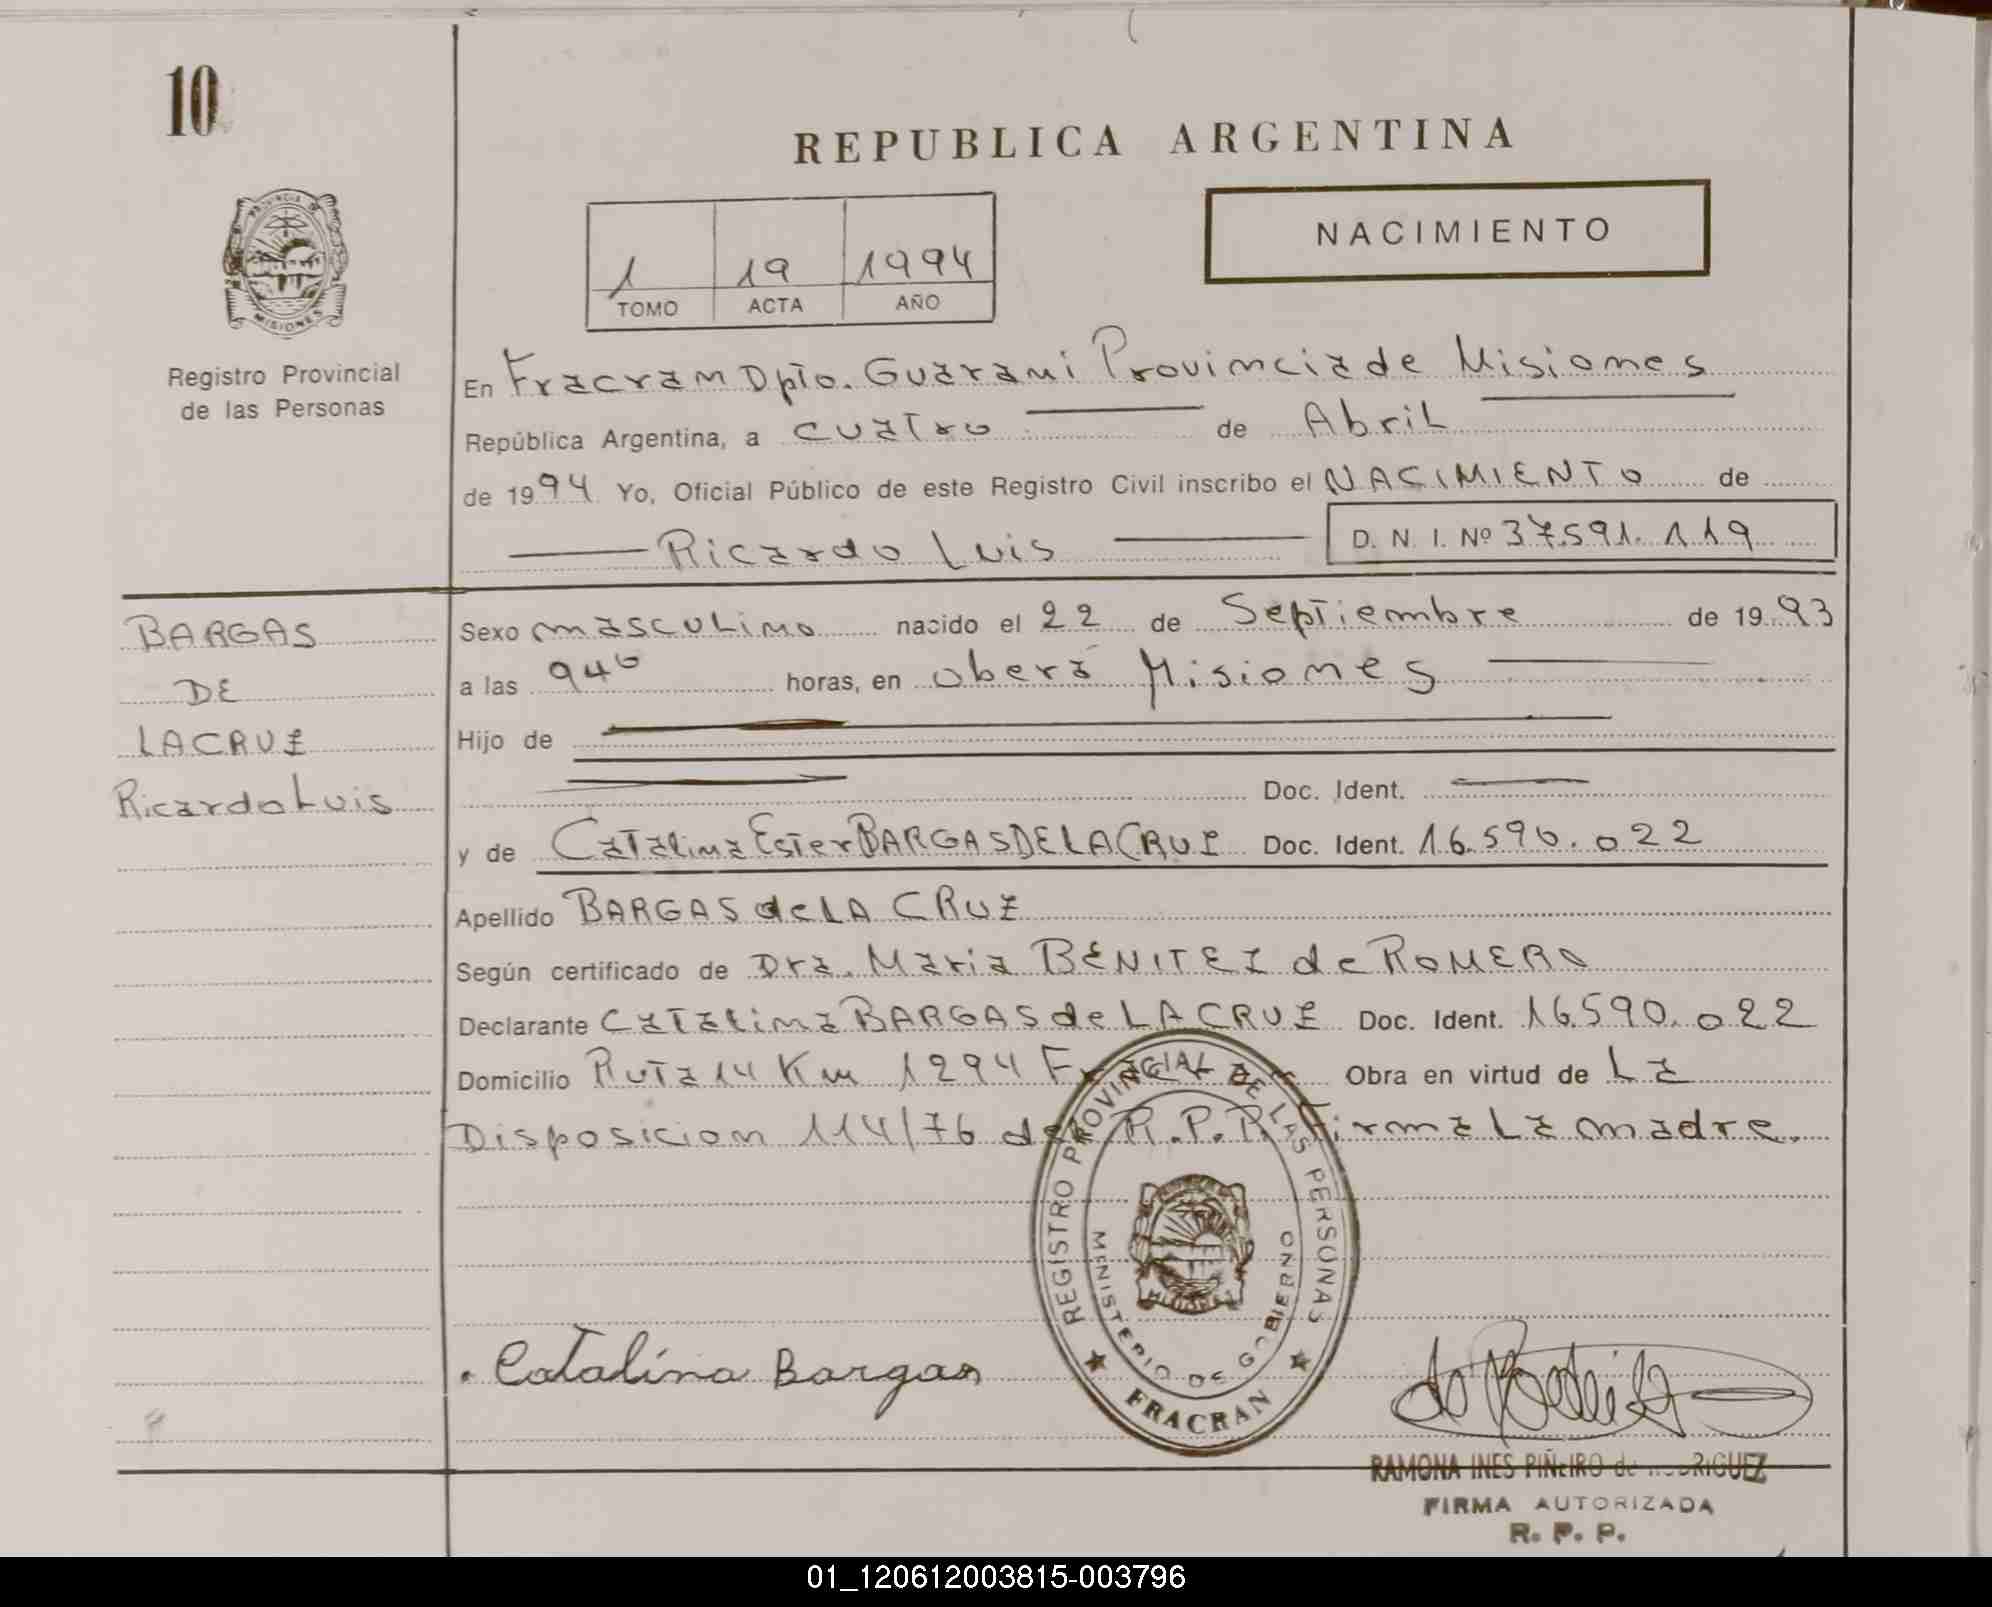 10
REPUBLICA ARGENTINA
PROVINCIA DE
MISIONES
Registro Provincial
de las Personas
1 19 1994
TOMO ACTA AÑO
NACIMIENTO
En Fracran Dpto. Guarani Provincia de Misiones
República Argentina, a cuatro de Abril
de 1994 Yo, Oficial Público de este Registro Civil inscribo el NACIMIENTO de
Ricardo Luis D. N. I. Nº 37.591.119
BARGAS
DE
LA CRUZ
Ricardo Luis
Sexo masculino nacido el 22 de Septiembre de 1993
a las 940 horas, en oberá Misiones
Hijo de
Doc. Ident.
y de Catalina Ester BARGAS DE LA CRUZ Doc. Ident. 16.590.022
Apellido BARGAS de LA CRUZ
Según certificado de Dra. Maria BENITEZ de ROMERO
Declarante Catalina BARGAS de LA CRUZ Doc. Ident. 16.590.022
Domicilio Ruta 14 Km 1294 Obra en virtud de La
Disposicion 114/76 del R.P.P. Firma La madre.
REGISTRO PROVINCIAL DE LAS PERSONAS
MINISTERIO DE GOBIERNO
MISIONES
FRACRAN
Catalina Bargas
RAMONA INES PIÑEIRO de RODRIGUEZ
FIRMA AUTORIZADA
R. P. P.
01_120612003815-003796